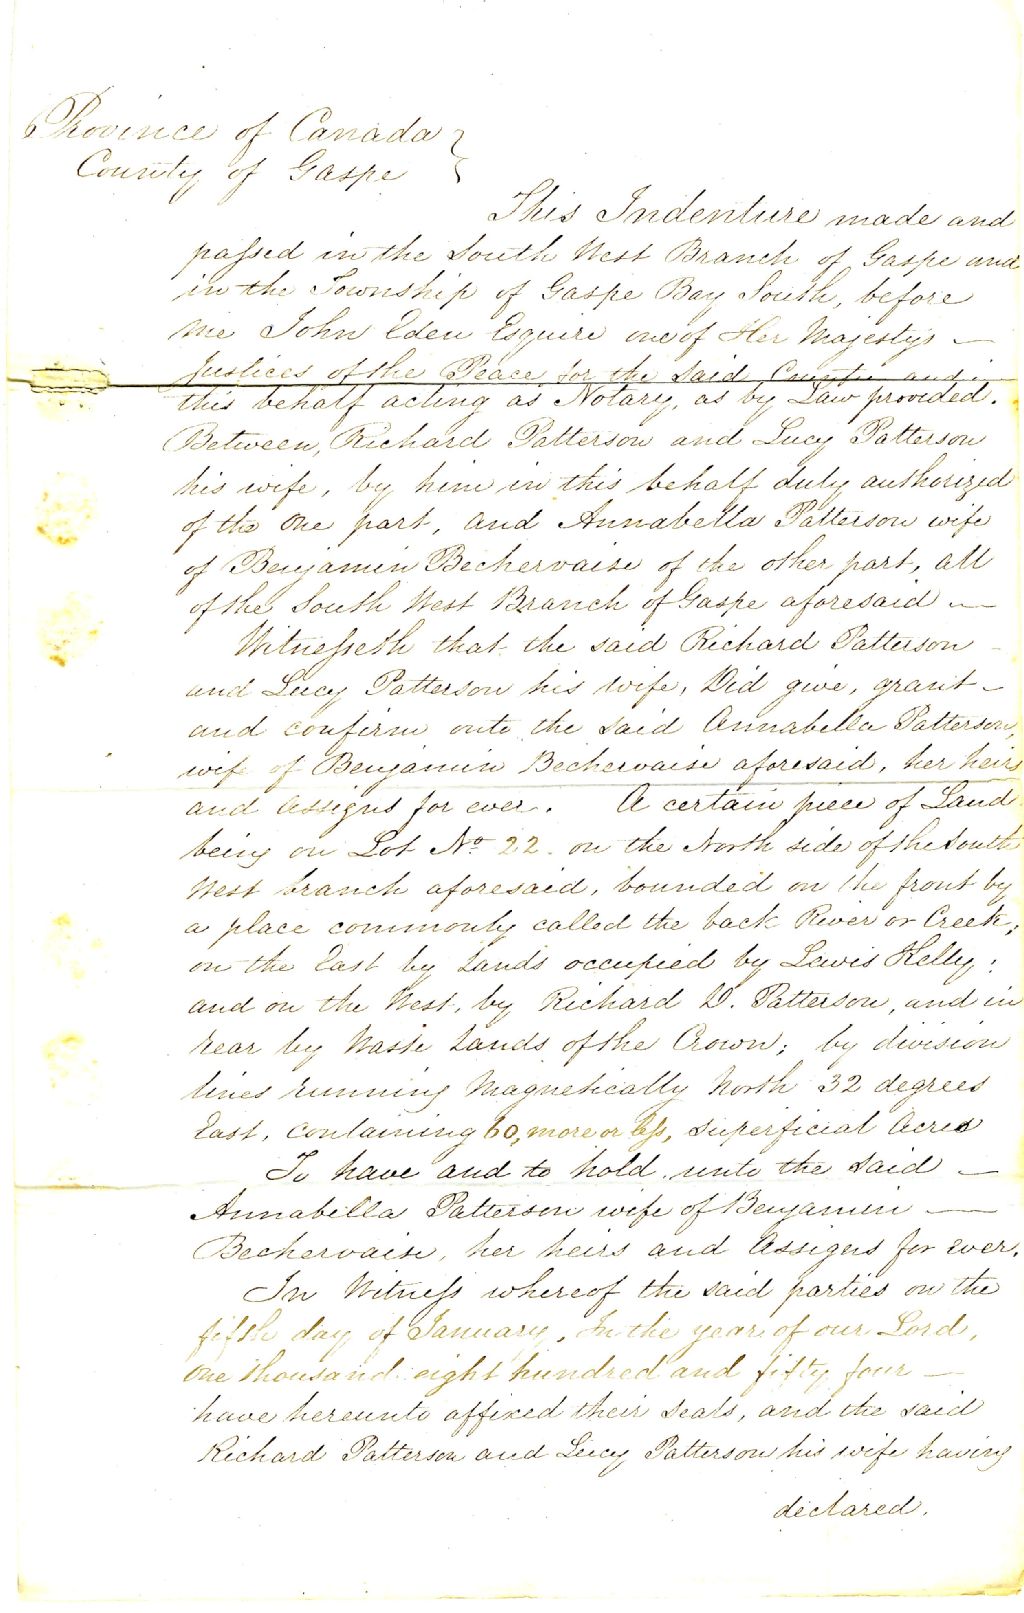 Province of Canada }
County of Gaspe }
This Indenture made and
passed in the South West Branch of Gaspe and
in the Township of Gaspe Bay South, before
me John Eden Esquire one of Her Majestys —
Justices of the Peace for the Said County and in
this behalf acting as Notary, as by Law provided.
Between, Richard Patterson and Lucy Patterson
his wife, by him in this behalf duly authorized
of the one part, and Annabella Patterson wife
of Benjamin Bechervaise of the other part, all
of the South West Branch of Gaspe aforesaid —
Witnesseth that the said Richard Patterson -
and Lucy Patterson his wife, Did give, grant -
and confirm onto the said Annabella Patterson,
wife of Benjamin Bechervaise aforesaid, her heirs
and Assigns for ever. A certain piece of Land
being on Lot No 22. on the North side of the South
West branch aforesaid, bounded on the front by
a place commonly called the back River or Creek,
on the East by Lands occupied by Lewis Kelly;
and on the West, by Richard D. Patterson, and in
rear by Waste Lands of the Crown; by division
lines running Magnetically North 32 degrees
East, containing 60, more or less, superficial Acres
To have and to hold unto the said —
Annabella Patterson wife of Benjamin —
Bechervaise, her heirs and Assigns for ever.
In Witness whereof the said parties on the
fifth day of January, In the year of our Lord,
One thousand eight hundred and fifty four —
have hereunto affixed their seals, and the said
Richard Patterson and Lucy Patterson his wife having
declared.